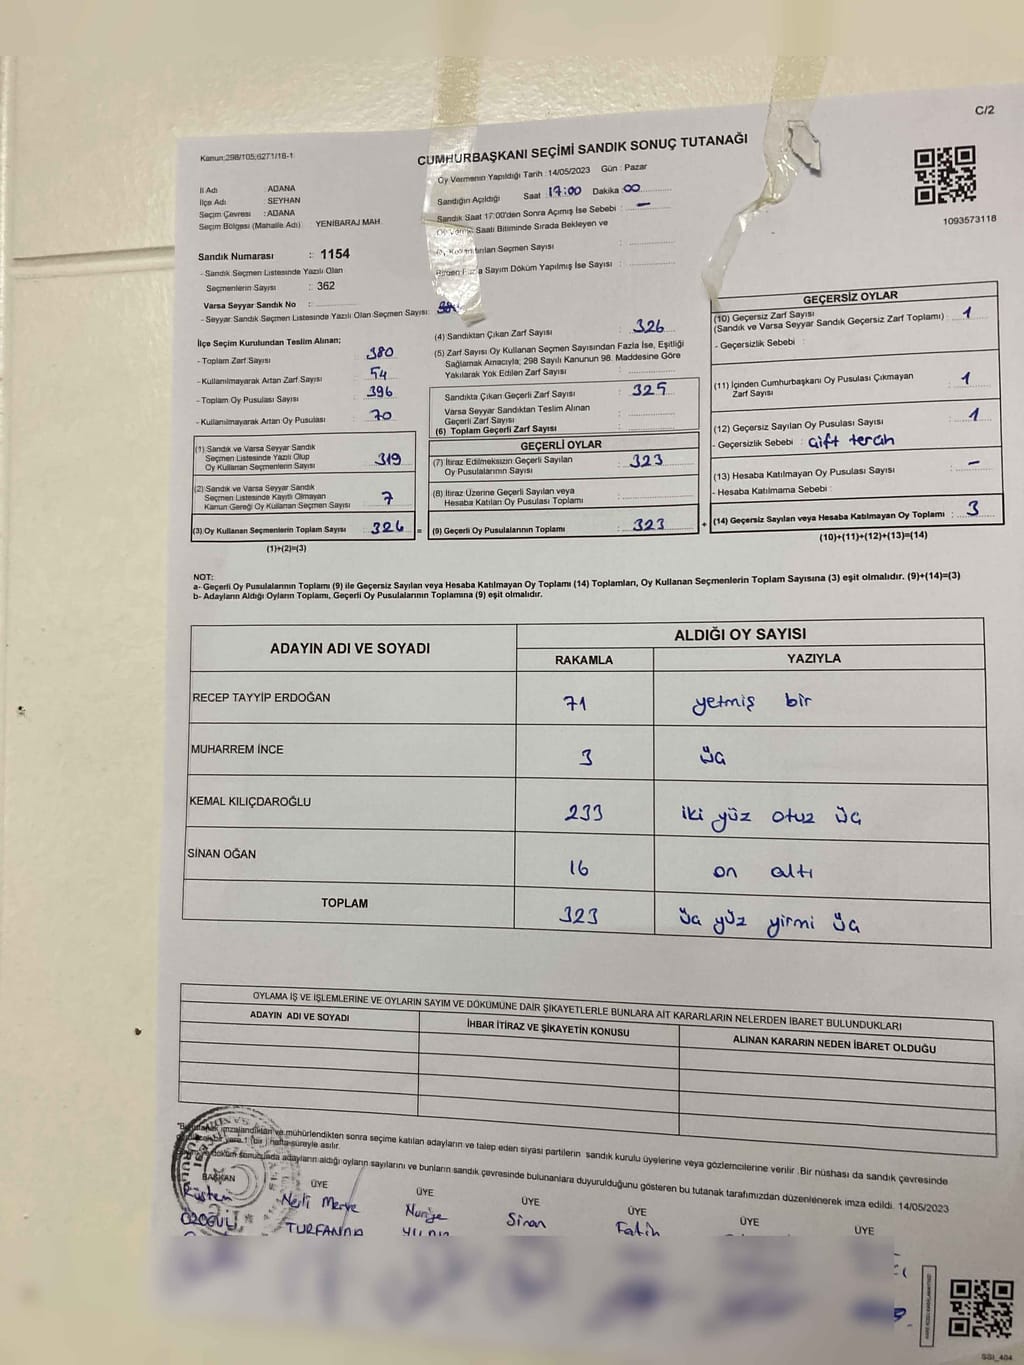 C/2
Kanun:298/105;6271/18-1
CUMHURBAŞKANI SEÇİMİ SANDIK SONUÇ TUTANAĞI
Oy Vermenin Yapıldığı Tarih : 14/05/2023 Gün : Pazar
İl Adı : ADANA
İlçe Adı : SEYHAN
Seçim Çevresi : ADANA
Seçim Bölgesi (Mahalle Adı) YENİBARAJ MAH.
Sandığın Açıldığı Saat 17:00 Dakika 00
Sandık Saat 17:00'den Sonra Açımış İse Sebebi : –
Saati Bitiminde Sırada Bekleyen ve
Seçmen Sayısı :
Sayım Döküm Yapılmış İse Sayısı :
1093573118
Sandık Numarası : 1154
- Sandık Seçmen Listesinde Yazılı Olan
Seçmenlerin Sayısı : 362
Varsa Seyyar Sandık No :
- Seyyar Sandık Seçmen Listesinde Yazılı Olan Seçmen Sayısı:
İlçe Seçim Kurulundan Teslim Alınan;
- Toplam Zarf Sayısı : 380
- Kullanılmayarak Artan Zarf Sayısı : 54
- Toplam Oy Pusulası Sayısı : 396
- Kullanılmayarak Artan Oy Pusulası : 70
(1) Sandık ve Varsa Seyyar Sandık
Seçmen Listesinde Yazılı Olup
Oy Kullanan Seçmenlerin Sayısı : 319
(2) Sandık ve Varsa Seyyar Sandık
Seçmen Listesinde Kayıtlı Olmayan
Kanun Gereği Oy Kullanan Seçmen Sayısı : 7
(3) Oy Kullanan Seçmenlerin Toplam Sayısı : 326
(1)+(2)=(3)
(4) Sandıktan Çıkan Zarf Sayısı : 326
(5) Zarf Sayısı Oy Kullanan Seçmen Sayısından Fazla İse, Eşitliği
Sağlamak Amacıyla; 298 Sayılı Kanunun 98. Maddesine Göre
Yakılarak Yok Edilen Zarf Sayısı :
Sandıkta Çıkan Geçerli Zarf Sayısı : 325
Varsa Seyyar Sandıktan Teslim Alınan
Geçerli Zarf Sayısı :
(6) Toplam Geçerli Zarf Sayısı :
GEÇERLİ OYLAR
(7) İtiraz Edilmeksizin Geçerli Sayılan
Oy Pusulalarının Sayısı : 323
(8) İtiraz Üzerine Geçerli Sayılan veya
Hesaba Katılan Oy Pusulası Toplamı :
= (9) Geçerli Oy Pusulalarının Toplamı : 323
GEÇERSİZ OYLAR
(10) Geçersiz Zarf Sayısı
(Sandık ve Varsa Seyyar Sandık Geçersiz Zarf Toplamı) : 1
- Geçersizlik Sebebi :
(11) İçinden Cumhurbaşkanı Oy Pusulası Çıkmayan
Zarf Sayısı : 1
(12) Geçersiz Sayılan Oy Pusulası Sayısı : 1
- Geçersizlik Sebebi : Çift tercih
(13) Hesaba Katılmayan Oy Pusulası Sayısı : –
- Hesaba Katılmama Sebebi :
+ (14) Geçersiz Sayılan veya Hesaba Katılmayan Oy Toplamı : 3
(10)+(11)+(12)+(13)=(14)
NOT:
a- Geçerli Oy Pusulalarının Toplamı (9) ile Geçersiz Sayılan veya Hesaba Katılmayan Oy Toplamı (14) Toplamları, Oy Kullanan Seçmenlerin Toplam Sayısına (3) eşit olmalıdır. (9)+(14)=(3)
b- Adayların Aldığı Oyların Toplamı, Geçerli Oy Pusulalarının Toplamına (9) eşit olmalıdır.
ADAYIN ADI VE SOYADI ALDIĞI OY SAYISI
RAKAMLA YAZIYLA
RECEP TAYYİP ERDOĞAN 71 yetmiş bir
MUHARREM İNCE 3 üç
KEMAL KILIÇDAROĞLU 233 iki yüz otuz üç
SİNAN OĞAN 16 on altı
TOPLAM 323 üç yüz yirmi üç
OYLAMA İŞ VE İŞLEMLERİNE VE OYLARIN SAYIM VE DÖKÜMÜNE DAİR ŞİKAYETLERLE BUNLARA AİT KARARLARIN NELERDEN İBARET BULUNDUKLARI
ADAYIN ADI VE SOYADI İHBAR İTİRAZ VE ŞİKAYETİN KONUSU ALINAN KARARIN NEDEN İBARET OLDUĞU
imzalandıktan ve mühürlendikten sonra seçime katılan adayların ve talep eden siyasi partilerin sandık kurulu üyelerine veya gözlemcilerine verilir. Bir nüshası da sandık çevresinde
yere 1 (bir) hafta süreyle asılır.
döküm sonucuda adayların aldığı oyların sayılarını ve bunların sandık çevresinde bulunanlara duyurulduğunu gösteren bu tutanak tarafımızdan düzenlenerek imza edildi. 14/05/2023
BAŞKAN ÜYE ÜYE ÜYE ÜYE ÜYE ÜYE
Rüstem Merve Nuriye Sinan Fatih
SSI_404